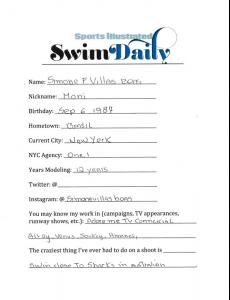 Sports Illustrated
Swim Daily
Name: Simone F Villas Boas
Nickname: Moni
Birthday: Sep 6 1987
Hometown: Brasil
Current City: New York
NYC Agency: One 1
Years Modeling: 12 years
Twitter: @
Instagram: @ Simonevillasboas
You may know my work in (campaigns, TV appearances,
runway shows, etc.): Adore me TV Comercial
All day, Venus,
The craziest thing I've ever had to do on a shoot is
Swim close to Sharks in Australian